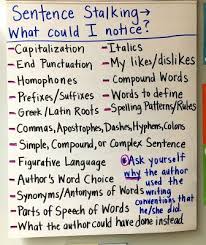 Sentence Stalking→
What could I notice?
-Capitalization
-Italics
-End Punctuation
-My likes/dislikes
-Homophones
-Compound Words
-Prefixes/Suffixes
-Words to define
-Greek/Latin Roots
-Spelling Patterns/Rules
-Commas, Apostrophes, Dashes, Hyphens, Colons
-Simple, Compound, or Complex Sentence
-Figurative Language
-Author's Word Choice
-Synonyms/Antonyms of Words
-Parts of Speech of Words
-What the author could have done instead
Ask yourself
why the author
used the
writing
conventions that
he/she did.